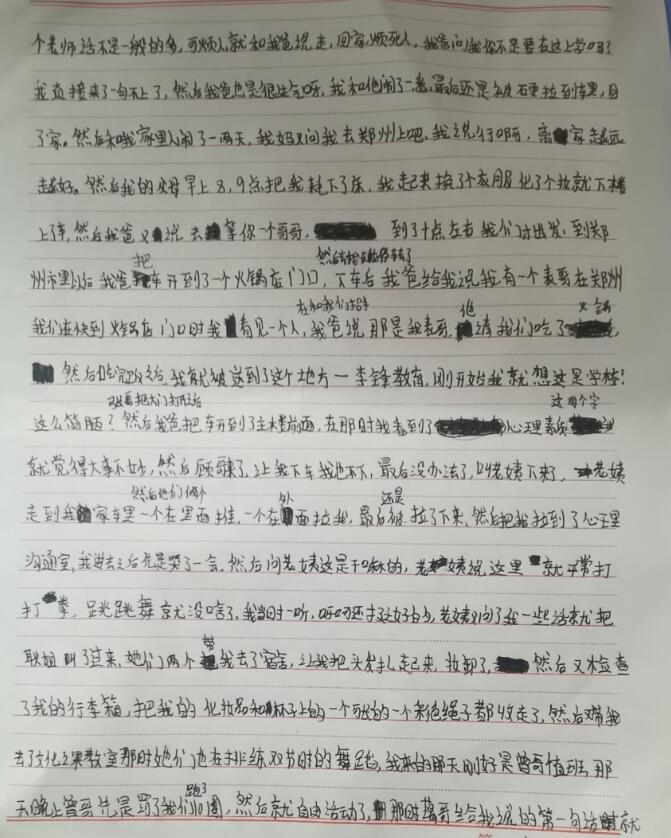 个老师话不是一般的多,可烦人就和我爸说走,回家,烦死人,我爸问我你不是要在这上学吗?
我直接来了一句不上了,然后我爸也是很生气呀,我和他闹了一番,最后还是被硬拉到车里,回
了家。然后和我家里人闹了一两天,我妈又问我去郑州上吧,我说行啊,离家越远
越好。然后我的父母早上8,9点把我耗下了床,我起来换了个衣服化了个妆就下楼
上了车,然后我爸又说去拿你一个哥哥,到了十点左右我们才出发,到郑
州市里以后我爸把车开到了一个火锅店门口,下车后我爸给我说我有一个表哥在郑州
我们在快到火锅店门口时我看见一个人,我爸说那是我表哥,他请我们吃了火锅
然后吃完饭之后,我就被送到了这个地方一李锋教育,刚开始我就想这是学校!
这么简陋?然后我爸把车开到了主楼前面,在那时我看到了心理素质这四个字
就觉得大事不妙,然后顾哥来了,让我下车我也不下,最后没办法了,叫老姨下来,老姨
走到我家车里然后他们俩个一个在里面推,一个在外面拉我,最后还是被拉了下来,然后把我拉到了心理
沟通室,我进去之后先是哭了一会,然后问老姨这是干嘛的,老姨说这里就平常打
打拳,跳跳舞就没啥了,我当时一听,哎呦还挺好的,老姨又问了我一些话就把
耿姐叫了过来,她们两个带我去了宿舍,让我把头发扎起来,妆卸了,然后又检查
了我的行李箱,把我的化妆品和杯子上的一个彩色绳子都收走了,然后带我
去了文化课教室那时她们也在排练双节时的舞蹈,我来的那天刚好是曾哥值班,那
天晚上曾哥先是罚了我们跑了10圈,然后就自由活动了,那时给我说的第一句话就